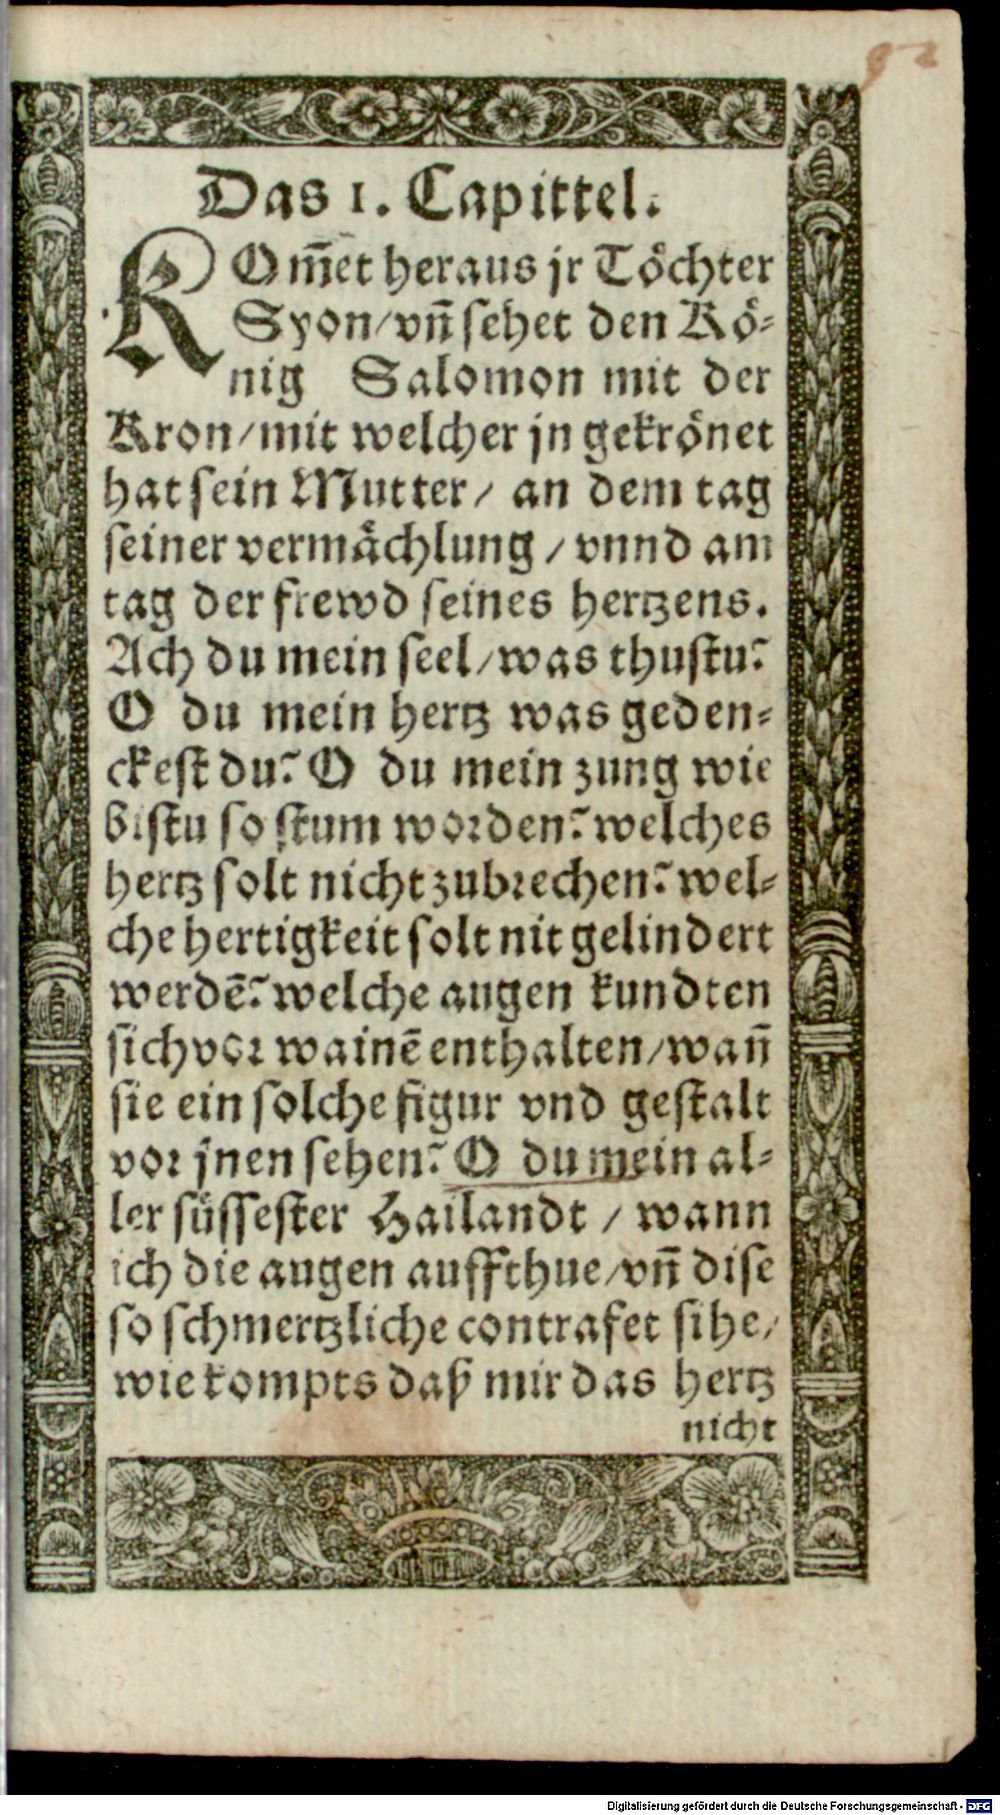 92
Das 1. Capittel.
KOm̃et heraus jr Toͤchter
Syon/vñ sehet den Koͤ-
nig Salomon mit der
Kron/mit welcher jn gekroͤnet
hat sein Mutter/ an dem tag
seiner vermaͤchlung / vnnd am
tag der frewd seines hertzens.
Ach du mein seel/was thustu?
O du mein hertz was geden-
ckest du? O du mein zung wie
bistu so stum worden? welches
hertz solt nicht zubrechen? wel-
che hertigkeit solt nit gelindert
werdē? welche augen kundten
sich vor wainē enthalten/wañ
sie ein solche figur vnd gestalt
vor jnen sehen? O du mein al-
ler suͤssester Hailandt / wann
ich die augen auffthue/vñ dise
so schmertzliche contrafet sihe/
wie kompts daß mir das hertz
nicht
Digitalisierung gefördert durch die Deutsche Forschungsgemeinschaft - DFG